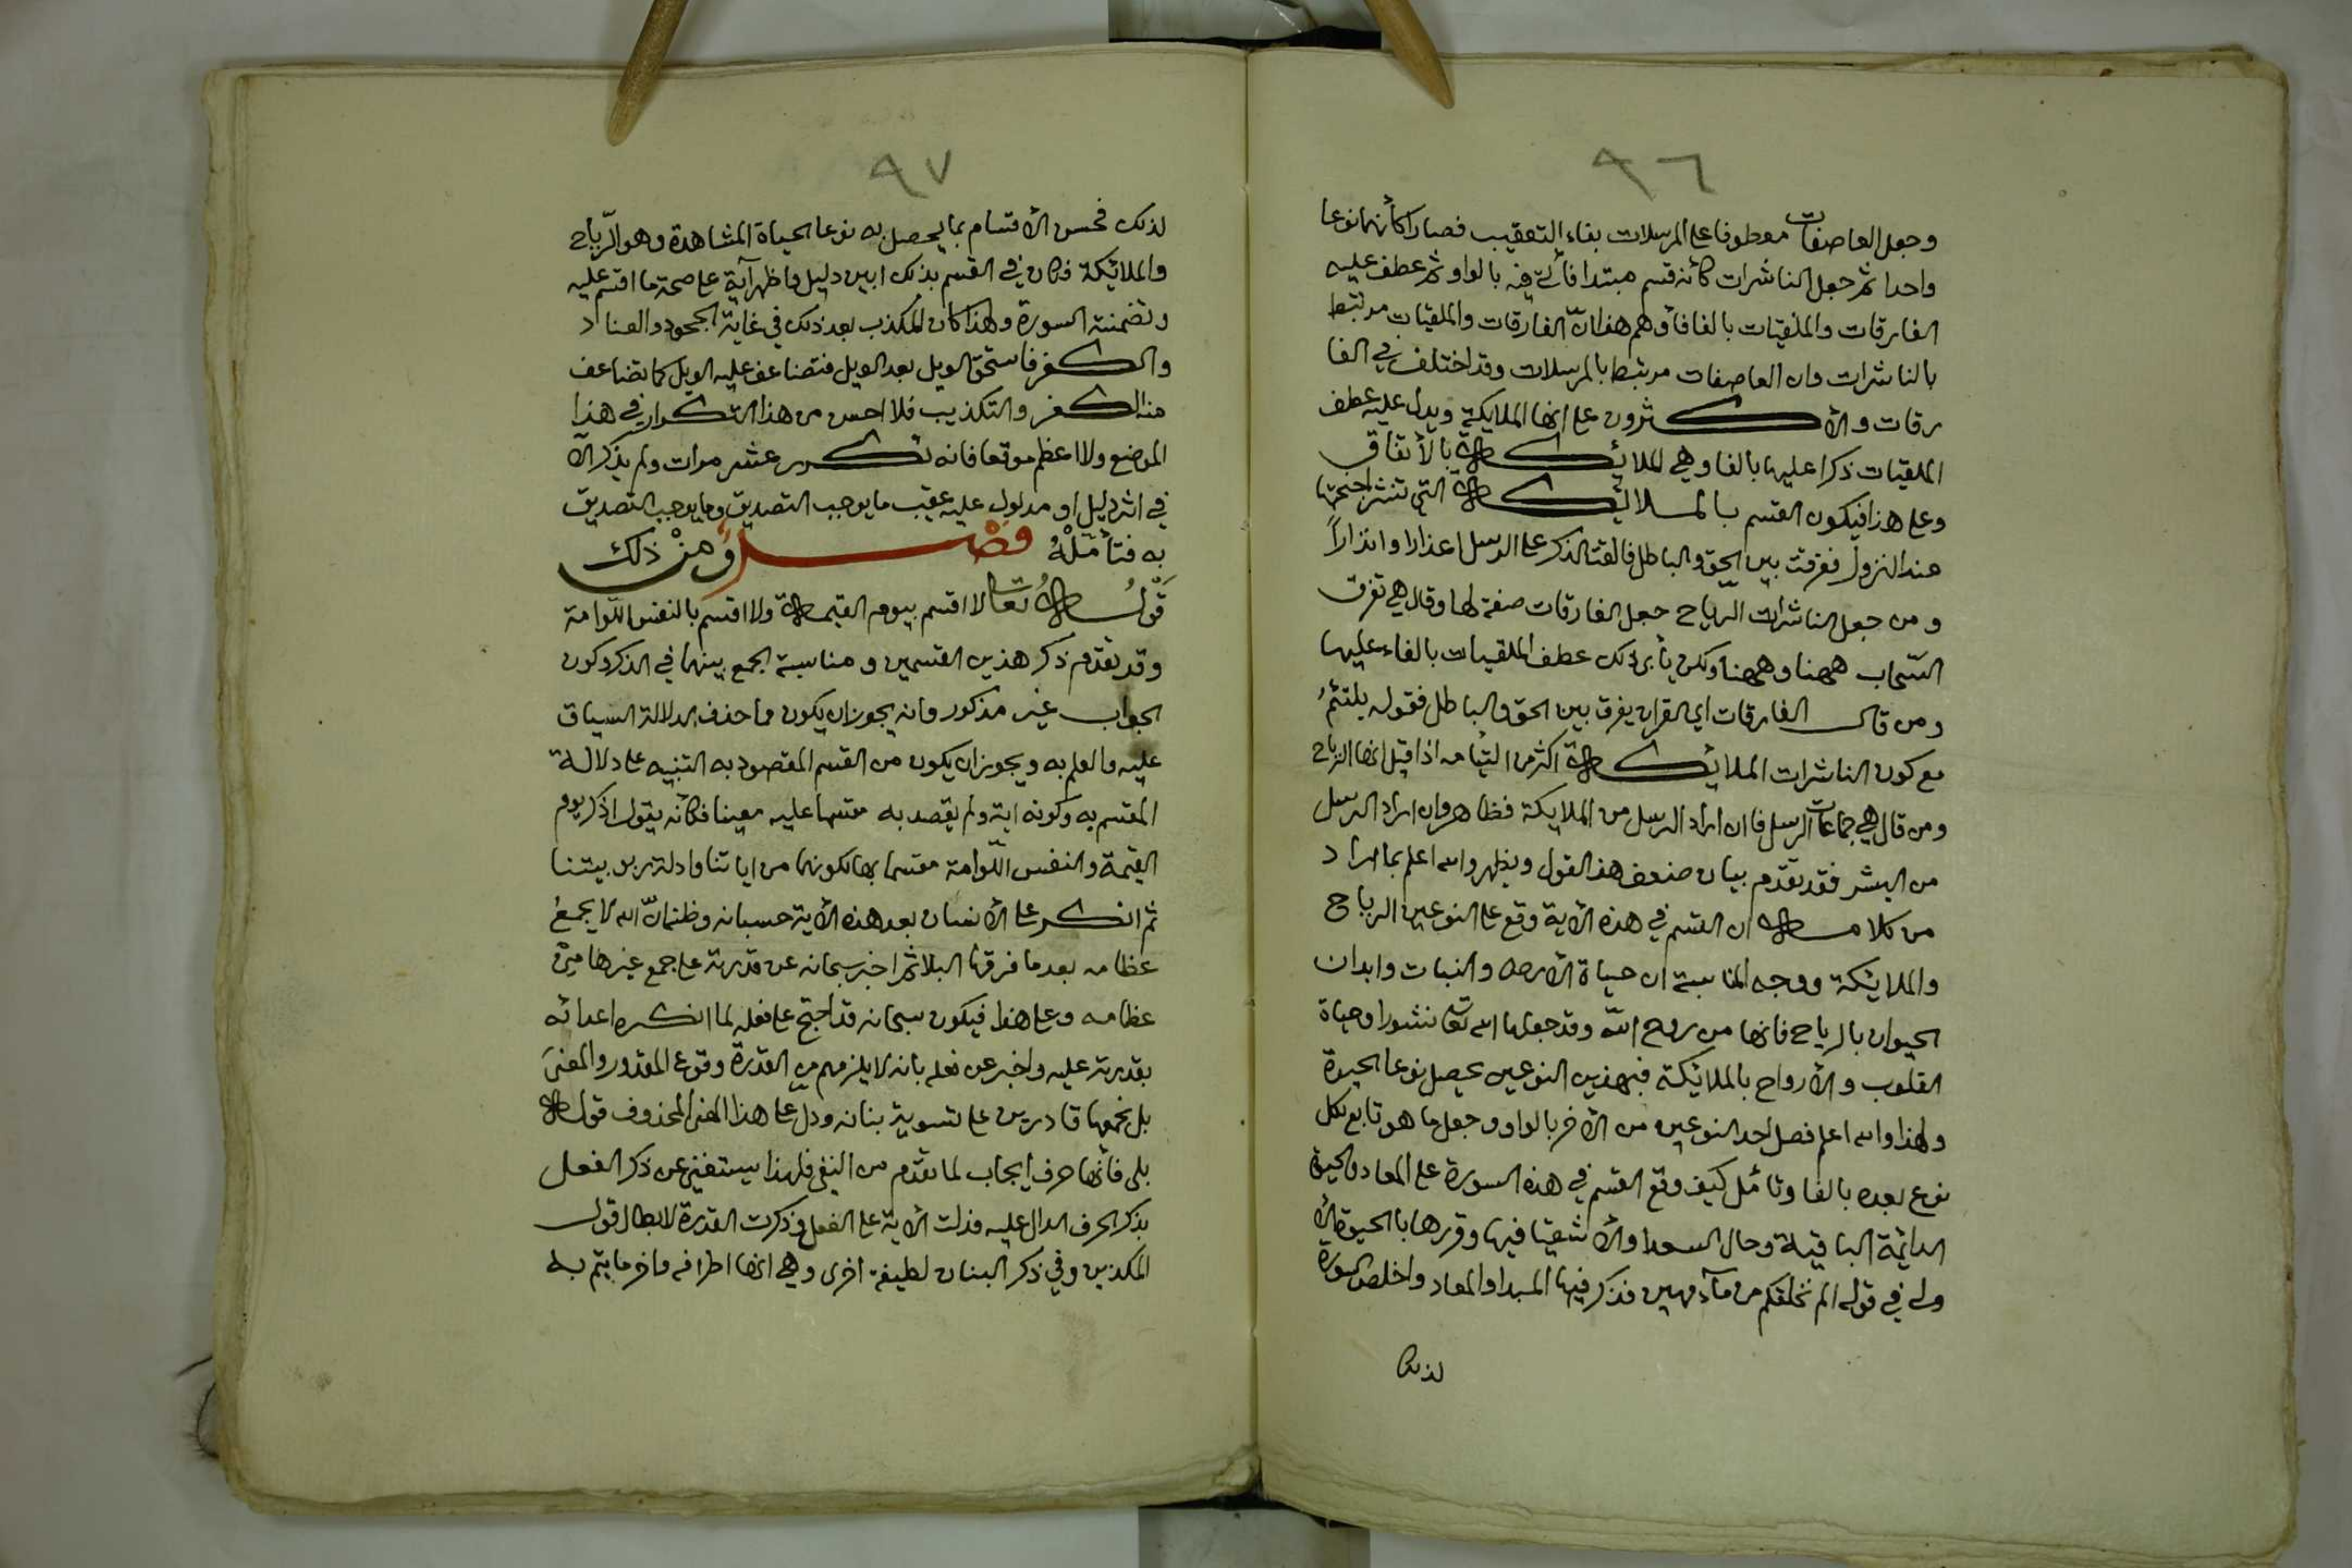 ٩٦
وجعل العاصفات معطوفا على المرسلات بفاء التعقيب فصارا كأنهما نوعا
واحدا ثم جعل الناشرات كأنه قسم مبتدا فأتى فيه بالواو ثم عطف عليه
الفارقات والملقيات بالفا فأوهم هذا انّ الفارقات والملقيات مرتبط
بالناشرات وان العاصفات مرتبط بالمرسلات وقد اختلف في الفا
رقات والأكثرون على انها الملايكة ويدل عليه عطف
الملقيات ذكرا عليها بالفا وهي الملائكة بالأتفاق
وعلى هذا فيكون القسم بالملائكة التي تنشر اجنحتها
عند النزول ففرقت بين الحق والباطل فالقت الذكر على الرسل اعذارا وانذاراً
ومن جعل الناشرات الرياح جعل الفارقات صفة لها وقال هي تفرق
السّحاب ههنا وههنا ولكن يأبى ذلك عطف الملقيات بالفاء عليها
ومن قال الفارقات اي القران يفرق بين الحق والباطل فقوله يلتئمُ
مع كون الناشرات الملائكة اكثر من التيامه اذا قيل انها الرياح
ومن قال هي جماعات الرسل فان اراد الرسل من الملايكة فظاهر وان اراد الرسل
من البشر فقد تقدّم بيان ضعف هذا القول ويظهر والله اعلم بما اراد
من كلامه ان القسم في هذه الأية وقع على النوعين الرياح
والملايكة ووجه المناسبة ان حياة الأرض والنبات وابدان
الحيوان بالرياح فانها من روح الله وقد جعلها الله تعالى نشورا وحياة
القلوب والأرواح بالملائكة فبهذين النوعين يحصل نوعا الحيوة
ولهذا والله اعلم فصل احد النوعين من الأخر بالواو وجعل ما هو تابع لكل
نوع بعده بالفا وتأمل كيف وقع القسم في هذه السورة على المعاد والحيوة
الدائمة الباقية وحال السعدا والأشقيا فيها وقررها بالحيوة الأ
ولى في قوله الم نخلقكم من مآء مهين فذكر فيها المبدا والمعاد واخلص السورة
لذلك
٩٧
لذلك فحسن الأقسام بما يحصل به نوعا الحياة المشاهدة وهو الرّياح
والملائكة فكان في القسم بذلك ابين دليل واظهر آية على صحة ما اقسم عليه
وتضمنته السورة ولهذا كان المكذب بعد ذلك في غاية الجحود والعناد
والكفر فاستحق الويل بعد الويل فتضاعف عليه الويل كما تضاعف
منه الكفر والتكذيب فلا احسن من هذا التكرار في هذا
الموضع ولا اعظم موقعا فانه تكرر عشر مرات ولم يذكر الاّ
في اثر دليل او مدلول عليه عقيب ما يوجب التصديق وما يوجب التصديق
به فتأمَلْهُ فصْل ومنْ ذلك
قَوْلُه تعالى لا اقسم بيوم القيمة ولا اقسم بالنفس اللّوامة
وقد تقدم ذكر هذين القسمين ومناسبة الجمع بينهما في الذكر وكون
الجواب غير مذكور وانه يجوز ان يكون مما حذف لدلالة السياق
عليه والعلم به ويجوز ان يكون من القسم المقصود به التنبيه على دلالة
المقسم به وكونه اية ولم يقصد به مقسما عليه معينا فكأنه يقول اذكر يوم
القيمة والنفس اللّوامة مقسما بهما لكونهما من اياتنا وادلة ربوبيتنا
ثم انكر على الأنسان بعد هذه الأية حسبانه وظنه انّ الله لا يجمع
عظامه بعد ما فرقها البلا ثم اخبر سبحانه عن قدرته على جمع غيرها من
عظامه وعلى هذا فيكون سبحانه قد احتج على فعله لما انكره اعدائه
بقدرته عليه واخبر عن فعله بانه لا يلزمهم من القدرة وقوع المقدور والمعنى
بل نجمعها قادرين على تسوية بنانه ودلّ على هذا المعنى المحذوف قوله
بلى فأنها حرف ايجاب لما تقدّم من النفي فلهذا يستغني عن ذكر الفعل
بذكر الحرف الدال عليه فدلت الأية على الفعل وذكرت القدرة لابطال قول
المكذبين وفي ذكر البنان لطيفة اخرى وهي انها اطرافه واخر ما يتم به